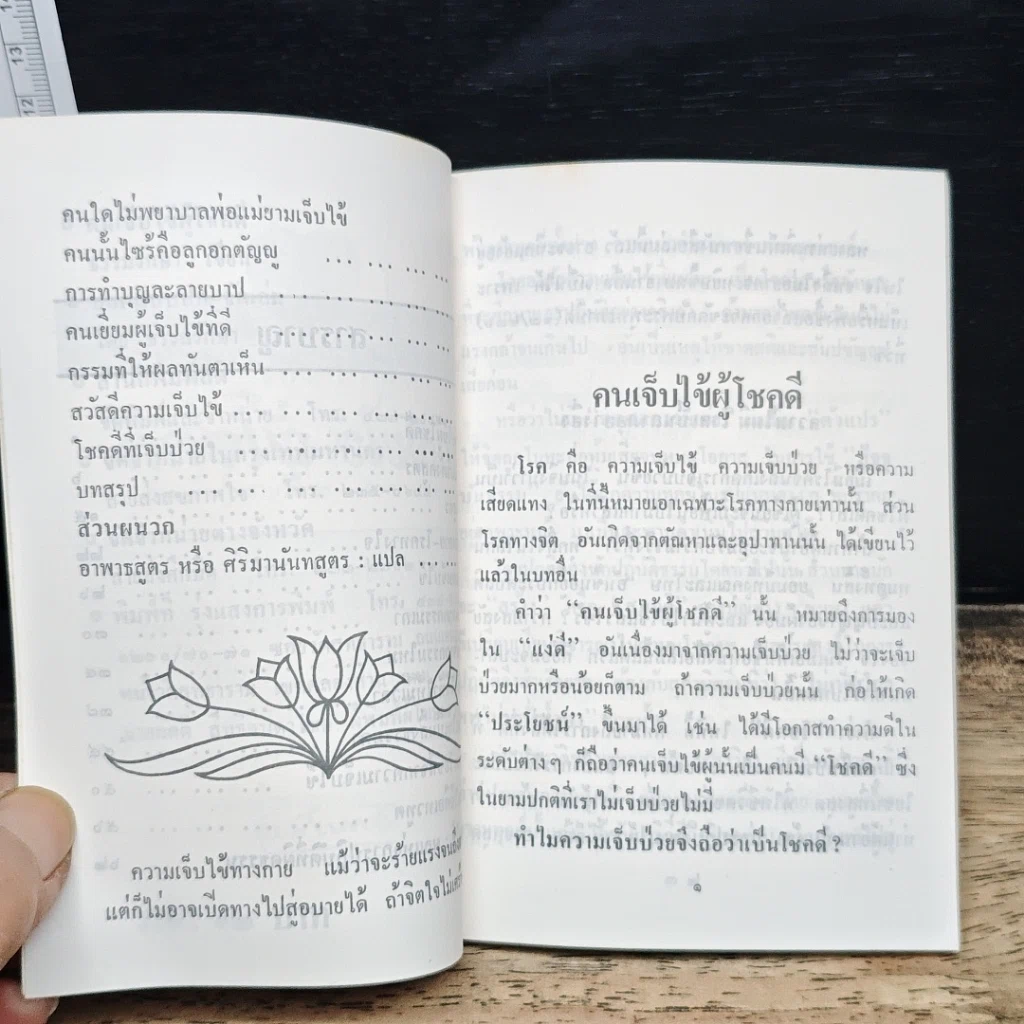 14
13
12
คนใดไม่พยาบาลพ่อแม่ยามเจ็บไข้
คนนั้นไซร้คือลูกอกตัญญู ... ... ... ...
การทำบุญละลายบาป ... ... ... ... ...
คนเยี่ยมผู้เจ็บไข้ที่ดี ... ... ... ... ...
กรรมที่ให้ผลทันตาเห็น ... ... ... ... ...
สวัสดีความเจ็บไข้ ... ... ... ... ... ...
โชคดีที่เจ็บป่วย ... ... ... ... ... ...
บทสรุป ... ... ... ... ... ...
ส่วนผนวก
อาพาธสูตร หรือ ศิริมานันทสูตร : แปล ... ...
ความเจ็บไข้ทางกาย แม้ว่าจะร้ายแรงจนถึง
แต่ก็ไม่อาจเปิดทางไปสู่อบายได้ ถ้าจิตใจไม่
คนเจ็บไข้ผู้โชคดี
โรค คือ ความเจ็บไข้ ความเจ็บป่วย หรือความ
เสียดแทง ในที่นี้หมายเอาเฉพาะโรคทางกายเท่านั้น ส่วน
โรคทางจิต อันเกิดจากตัณหาและอุปาทานนั้น ได้เขียนไว้
แล้วในบทอื่น
คำว่า “คนเจ็บไข้ผู้โชคดี” นั้น หมายถึงการมอง
ใน “แง่ดี” อันเนื่องมาจากความเจ็บป่วย ไม่ว่าจะเจ็บ
ป่วยมากหรือน้อยก็ตาม ถ้าความเจ็บป่วยนั้น ก่อให้เกิด
“ประโยชน์” ขึ้นมาได้ เช่น ได้มีโอกาสทำความดีใน
ระดับต่างๆ ก็ถือว่าคนเจ็บไข้ผู้นั้นเป็นคนมี “โชคดี” ซึ่ง
ในยามปกติที่เราไม่เจ็บป่วยไม่มี
ทำไมความเจ็บป่วยจึงถือว่าเป็นโชคดี ?
๑